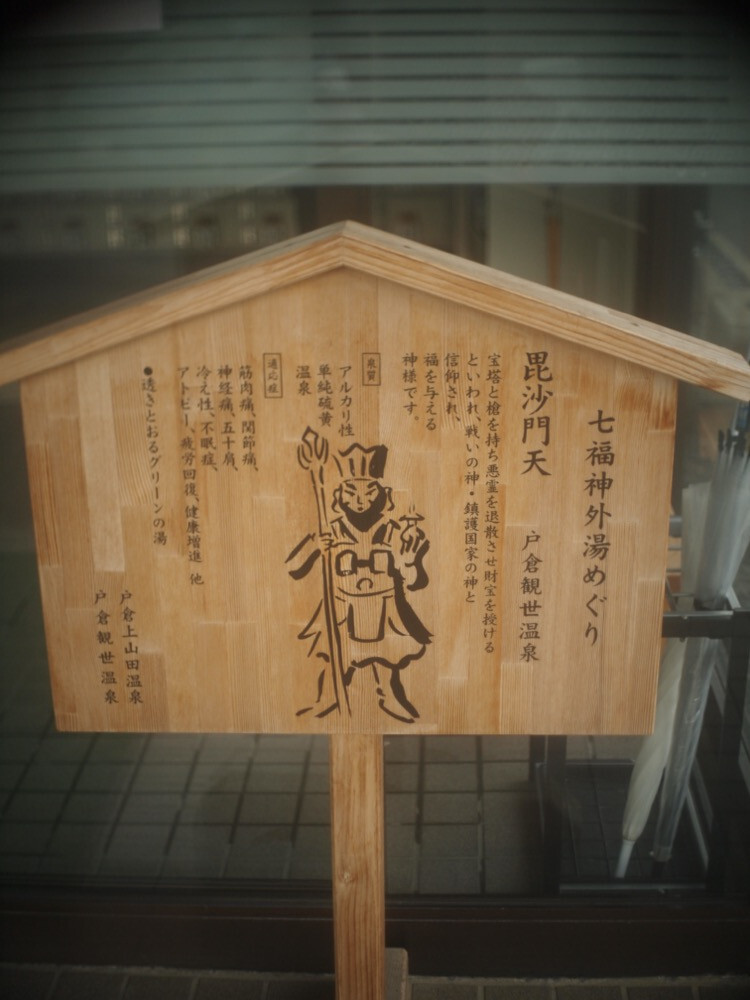 七福神外湯めぐり
毘沙門天 戸倉観世温泉
宝塔と槍を持ち悪霊を退散させ財宝を授ける
といわれ、戦いの神・鎮護国家の神と
信仰され、
福を与える
神様です。
泉質
アルカリ性
単純硫黄
温泉
適応症
筋肉痛、関節痛、
神経痛、五十肩、
冷え性、不眠症、
アトピー、疲労回復、健康増進 他
●透きとおるグリーンの湯
戸倉上山田温泉
戸倉観世温泉